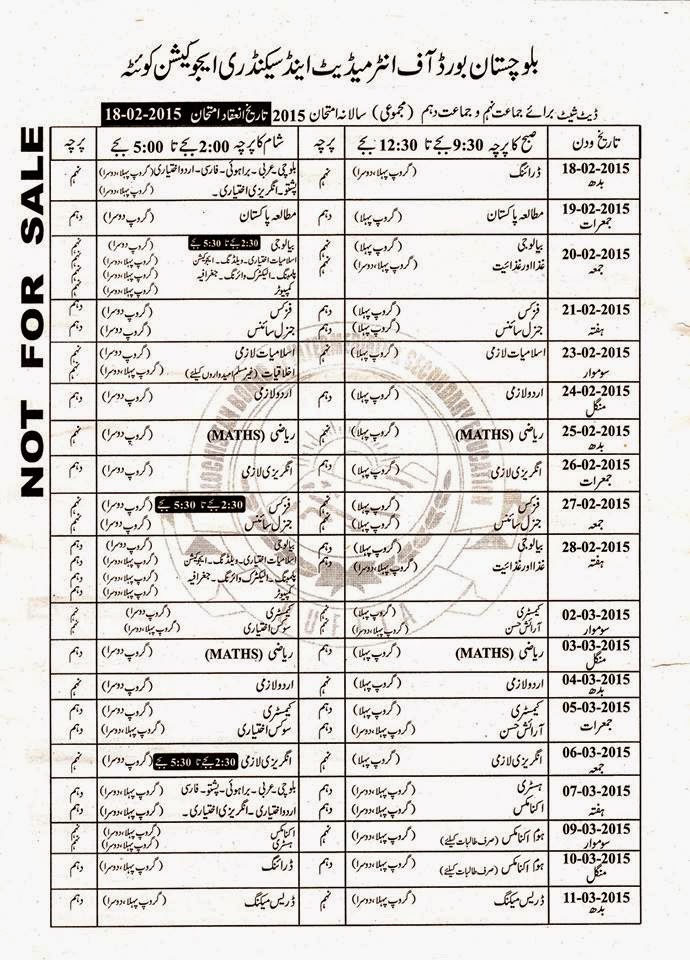 NOT FOR SALE
بلوچستان بورڈ آف انٹرمیڈیٹ اینڈ سیکنڈری ایجوکیشن کوئٹہ
ڈیٹ شیٹ برائے جماعت نہم و جماعت دہم (مجموعی) سالانہ امتحان 2015 تاریخ انعقاد امتحان 18-02-2015
تاریخ و دن صبح کا پرچہ 9:30 بجے تا 12:30 بجے پرچہ شام کا پرچہ 2:00 بجے تا 5:00 بجے پرچہ
18-02-2015 ڈرائنگ (گروپ پہلا، دوسرا) نہم بلوچی۔عربی۔براہوئی۔فارسی۔اردو اختیاری (گروپ پہلا، دوسرا) نہم
بدھ پشتو۔انگریزی اختیاری۔
19-02-2015 مطالعہ پاکستان (گروپ پہلا) دہم مطالعہ پاکستان (گروپ دوسرا) دہم
جمعرات
20-02-2015 بیالوجی (گروپ پہلا) نہم بیالوجی 2:30 بجے تا 5:30 بجے (گروپ دوسرا) نہم
جمعہ غذا اور غذائیت (گروپ پہلا، دوسرا) نہم اسلامیات اختیاری۔ویلڈنگ۔ایجوکیشن (گروپ پہلا، دوسرا) نہم
پلمبنگ۔الیکٹرک وائرنگ۔جغرافیہ (گروپ پہلا، دوسرا) نہم
کمپیوٹر (گروپ پہلا، دوسرا) نہم
21-02-2015 فزکس (گروپ پہلا) دہم فزکس (گروپ دوسرا) دہم
ہفتہ جنرل سائنس (گروپ پہلا) دہم جنرل سائنس (گروپ دوسرا) دہم
23-02-2015 اسلامیات لازمی (گروپ پہلا) نہم اسلامیات لازمی (گروپ دوسرا) نہم
سوموار اخلاقیات (غیر مسلم امیدواروں کیلئے) (گروپ پہلا، دوسرا) نہم
24-02-2015 اردو لازمی (گروپ پہلا) دہم اردو لازمی (گروپ دوسرا) دہم
منگل
25-02-2015 ریاضی (MATHS) (گروپ پہلا) نہم ریاضی (MATHS) (گروپ دوسرا) نہم
بدھ
26-02-2015 انگریزی لازمی (گروپ پہلا) دہم انگریزی لازمی (گروپ دوسرا) دہم
جمعرات
27-02-2015 فزکس (گروپ پہلا) نہم فزکس 2:30 بجے تا 5:30 بجے (گروپ دوسرا) نہم
جمعہ جنرل سائنس (گروپ پہلا) نہم جنرل سائنس (گروپ دوسرا) نہم
28-02-2015 بیالوجی (گروپ پہلا) دہم بیالوجی (گروپ دوسرا) دہم
ہفتہ غذا اور غذائیت (گروپ پہلا، دوسرا) دہم اسلامیات اختیاری۔ویلڈنگ۔ایجوکیشن (گروپ پہلا، دوسرا) دہم
پلمبنگ۔الیکٹرک وائرنگ۔جغرافیہ (گروپ پہلا، دوسرا) دہم
کمپیوٹر (گروپ پہلا، دوسرا) دہم
02-03-2015 کیمسٹری (گروپ پہلا) نہم کیمسٹری (گروپ دوسرا) نہم
سوموار آرائش حسن (گروپ پہلا، دوسرا) نہم سوکس اختیاری (گروپ پہلا، دوسرا) نہم
03-03-2015 ریاضی (MATHS) (گروپ پہلا) دہم ریاضی (MATHS) (گروپ دوسرا) دہم
منگل
04-03-2015 اردو لازمی (گروپ پہلا) نہم اردو لازمی (گروپ دوسرا) نہم
بدھ
05-03-2015 کیمسٹری (گروپ پہلا) دہم کیمسٹری (گروپ دوسرا) دہم
جمعرات آرائش حسن (گروپ پہلا، دوسرا) دہم سوکس اختیاری (گروپ پہلا، دوسرا) دہم
06-03-2015 انگریزی لازمی (گروپ پہلا) نہم انگریزی لازمی 2:30 بجے تا 5:30 بجے (گروپ دوسرا) نہم
جمعہ
07-03-2015 ہسٹری (گروپ پہلا، دوسرا) دہم بلوچی۔عربی۔براہوئی۔پشتو۔فارسی (گروپ پہلا، دوسرا) دہم
ہفتہ اکنامکس (گروپ پہلا، دوسرا) دہم اردو اختیاری۔انگریزی اختیاری۔ (گروپ پہلا، دوسرا) دہم
09-03-2015 ہوم اکنامکس (صرف طالبات کیلئے) (گروپ پہلا، دوسرا) نہم اکنامکس (گروپ پہلا، دوسرا) نہم
سوموار ہسٹری (گروپ پہلا، دوسرا) نہم
10-03-2015 ہوم اکنامکس (صرف طالبات کیلئے) (گروپ پہلا، دوسرا) دہم ڈرائنگ (گروپ پہلا، دوسرا) دہم
منگل
11-03-2015 ڈریس میکنگ (گروپ پہلا، دوسرا) نہم ڈریس میکنگ (گروپ پہلا، دوسرا) دہم
بدھ